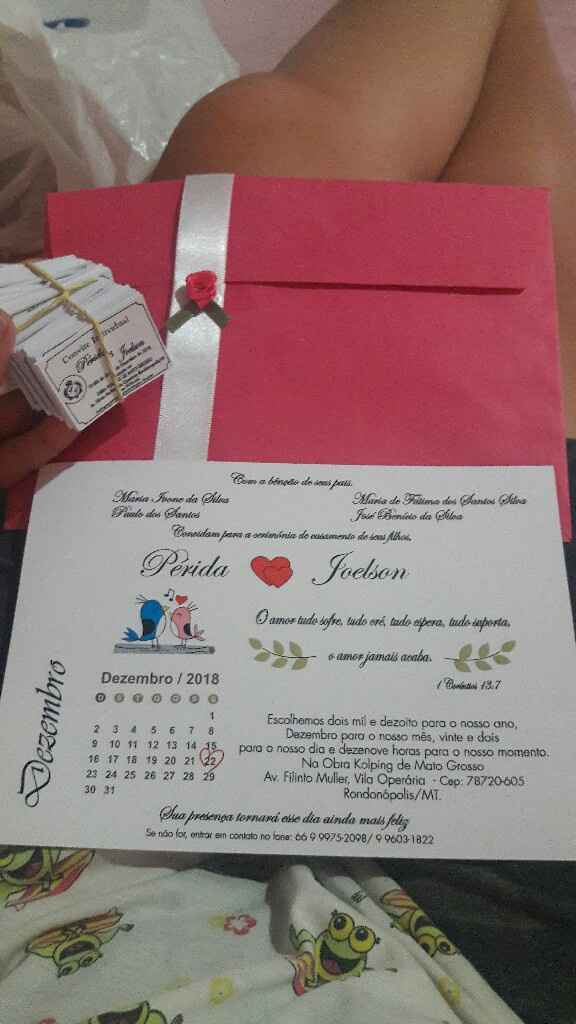 Convite Individual
Périda & Joelson
Com a bênção de seus pais.
Maria Ivone da Silva
Paulo dos Santos
Maria de Fátima dos Santos Silva
José Benício da Silva
Convidam para a cerimônia de casamento de seus filhos,
Périda Joelson
O amor tudo sofre, tudo crê, tudo espera, tudo suporta,
o amor jamais acaba.
1 Coríntios 13:7
Dezembro
Dezembro / 2018
D S T Q Q S S
1
2 3 4 5 6 7 8
9 10 11 12 13 14 15
16 17 18 19 20 21 22
23 24 25 26 27 28 29
30 31
Escolhemos dois mil e dezoito para o nosso ano,
Dezembro para o nosso mês, vinte e dois
para o nosso dia e dezenove horas para o nosso momento.
Na Obra Kolping de Mato Grosso
Av. Filinto Muller, Vila Operária - Cep: 78720-605
Rondonópolis/MT.
Sua presença tornará esse dia ainda mais feliz
Se não for, entrar em contato no fone: 66 9 9975-2098/ 9 9603-1822